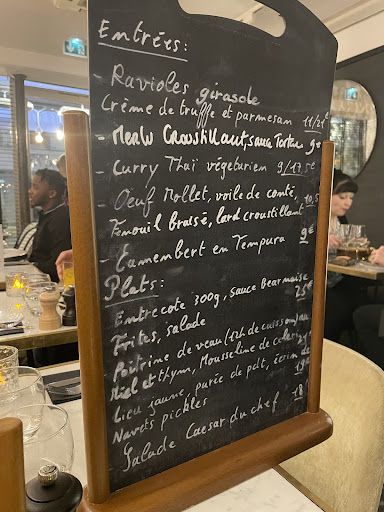 Entrées:
- Ravioles girasole
Crème de truffe et parmesan 11/21€
- Merlu Croustillant, sauce Tartare 9€
- Curry Thaï végétarien 9/17,5€
- Oeuf Mollet, voile de comté, 10,5
Fenouil braisé, lard croustillant
- Camembert en Tempura 9€
Plats:
- Entrecote 300g, sauce Bearnaise
Frites, salade 25€
- Poitrine de veau (12h de cuisson)
Miel et thym, Mousseline de Celeri
- Lieu jaune, purée de pdt,
Navets pickles 19
- Salade Caesar du chef 18